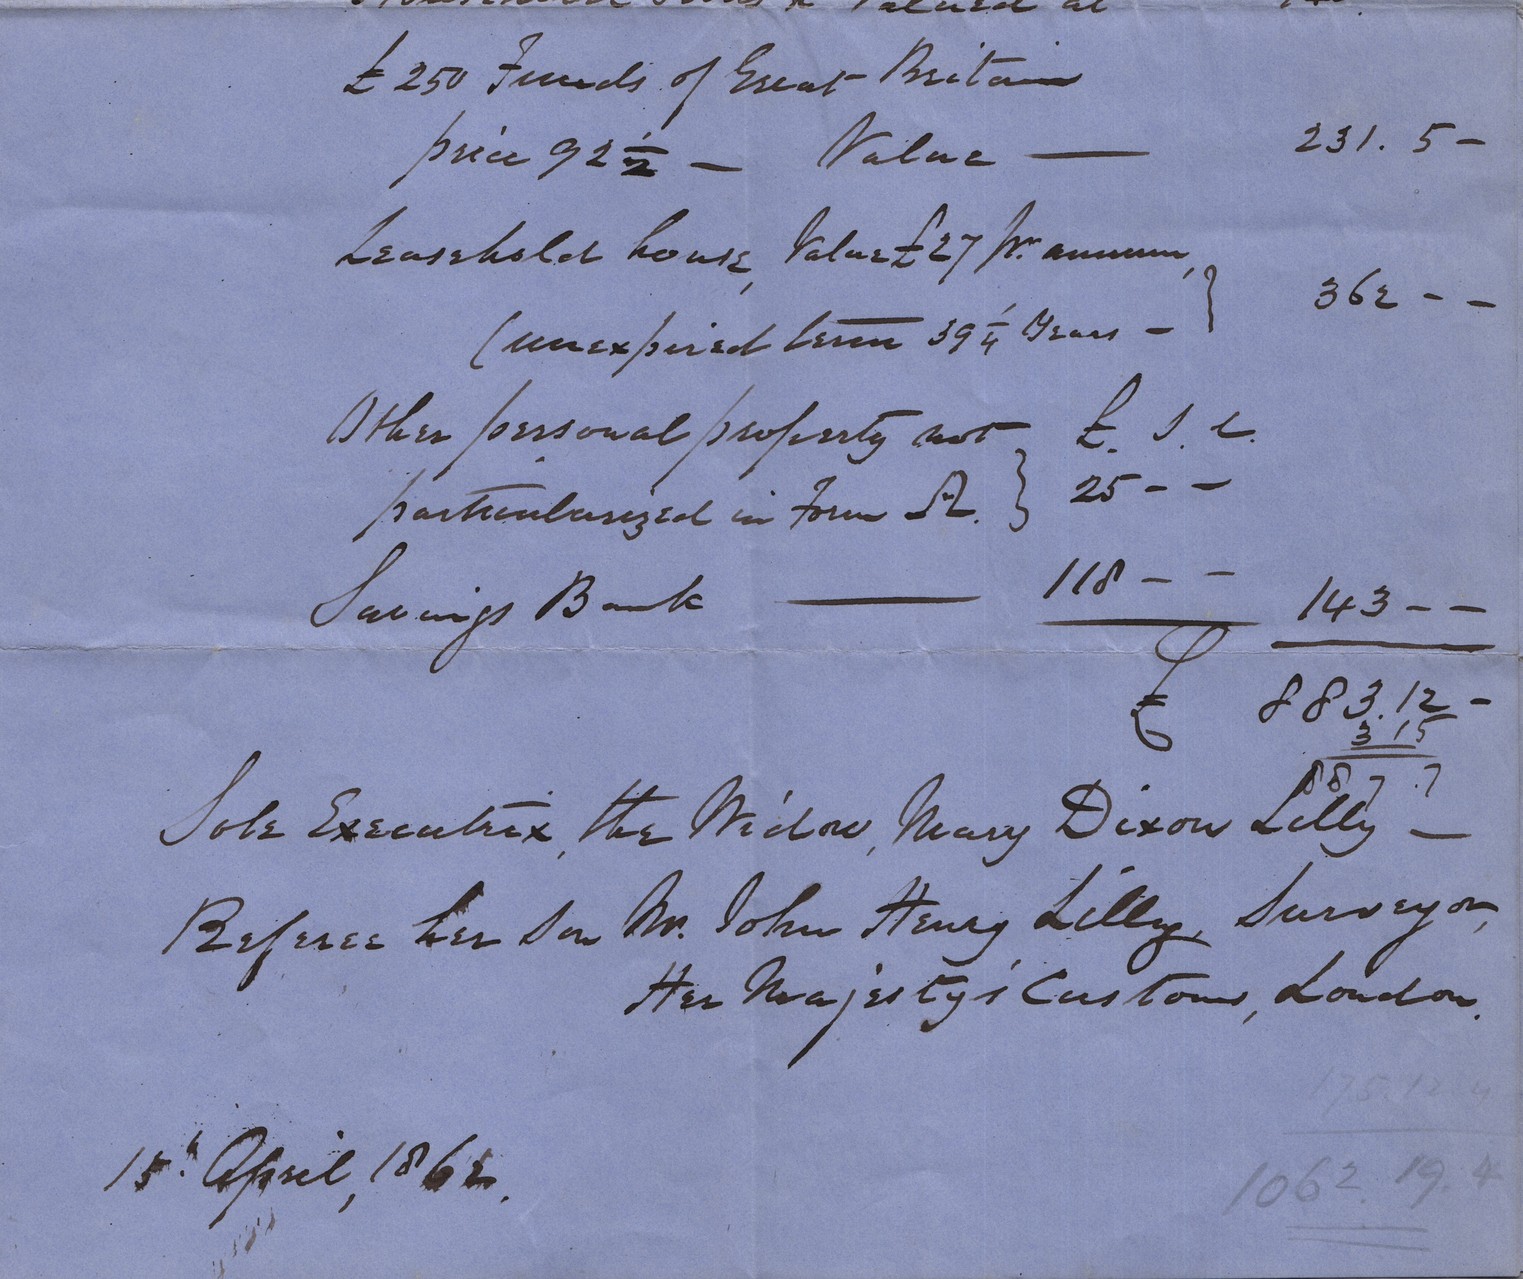 Valued at
£250 Funds of Great Britain
price 92 1/2 — Value — 231. 5 -
Leasehold house, Value £27 pr. annum,
(unexpired term 39 1/4 Years - } 362 - -
Other personal property not £. s. d.
particularized in Form A. } 25 - -
Savings Bank — 118 - - 143 - -
£ 883. 12 -
3 15
887 . 7
Sole Executrix, the Widow, Mary Dixon Lilly —
Referee her son Mr. John Henry Lilly, Surveyor,
Her Majesty's Customs, London.
175. 12. 4
15th April, 1862.
1062. 19. 4